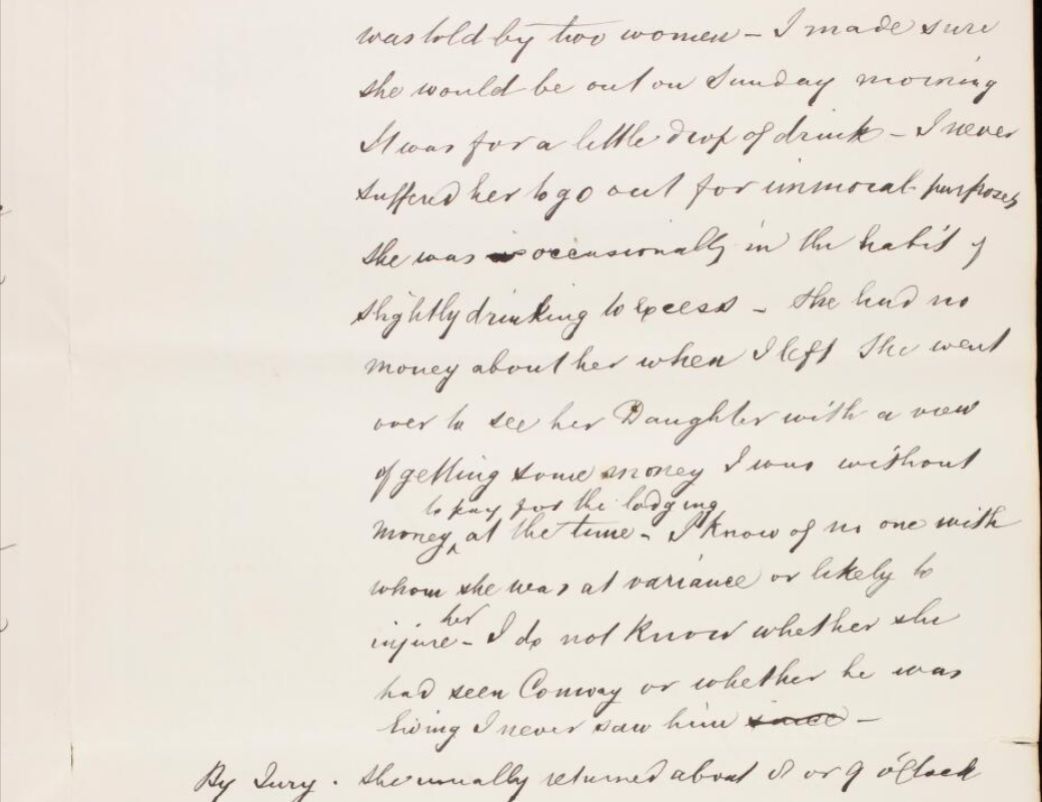 was told by two women - I made sure
she would be out on Sunday morning
It was for a little drop of drink - I never
suffered her to go out for immoral purposes
she was occasionally in the habit of
slightly drinking to excess - she had no
money about her when I left She went
over to see her Daughter with a view
of getting some money I was without
to pay for the lodging
money ^ at the time - I know of no one with
whom she was at variance or likely to
her
injure - I do not know whether she
had seen Conway or whether he was
living I never saw him since -
By Jury. she usually returned about 8 or 9 o'Clock